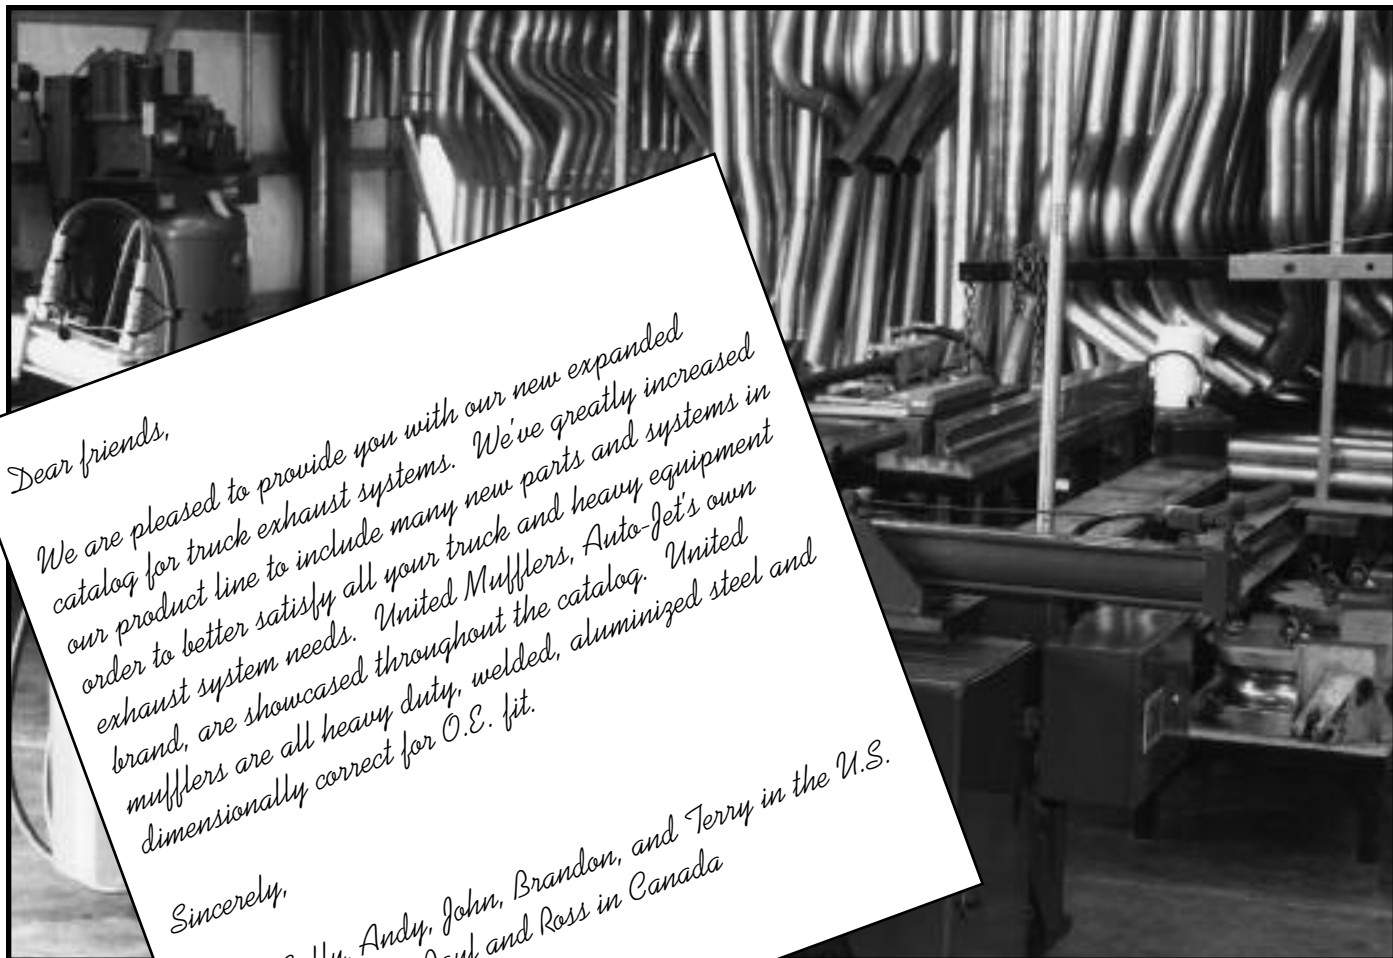 Dear friends,
We are pleased to provide you with our new expanded
catalog for truck exhaust systems. We've greatly increased
our product line to include many new parts and systems in
order to better satisfy all your truck and heavy equipment
exhaust system needs. United Mufflers, Auto-Jet's own
brand, are showcased throughout the catalog. United
mufflers are all heavy duty, welded, aluminized steel and
dimensionally correct for O.E. fit.
Sincerely,
Andy, John, Brandon, and Terry in the U.S.
and Ross in Canada